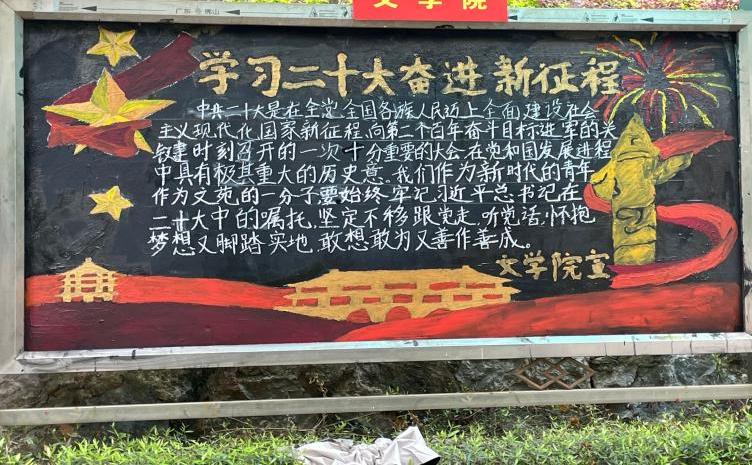 文学院
学习二十大奋进新征程
中共二十大是在全党全国各族人民迈上全面建设社会
主义现代化国家新征程,向第二个百年奋斗目标进军的关
键时刻召开的一次十分重要的大会,在党和国发展进程
中具有极其重大的历史意。我们作为新时代的青年
作为文苑的一分子,要始终牢记习近平总书记在
二十大中的嘱托,坚定不移跟党走,听党话,怀抱
梦想又脚踏实地,敢想敢为又善作善成。
文学院宣